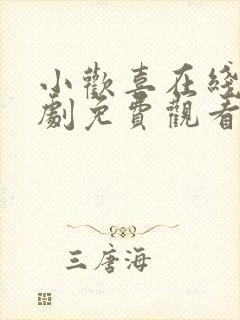 小歡喜在綫
劇免費觀看
三唐海